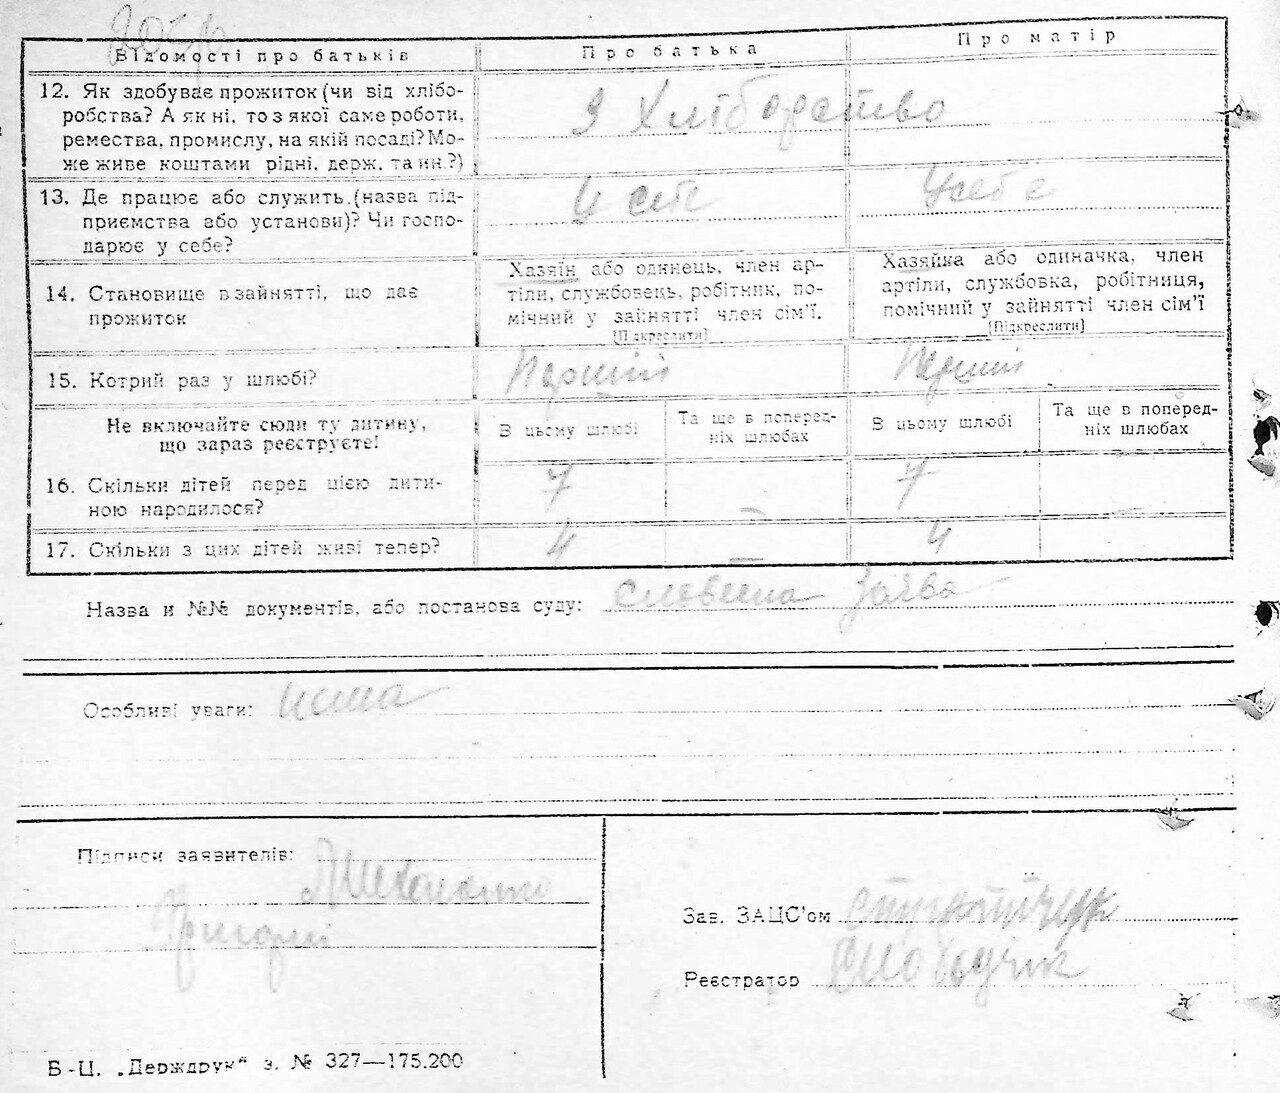 Відомості про батьків
Про батька
Про матір
12. Як здобуває прожиток (чи від хлібо-
робства? А як ні, то з якої саме роботи,
ремества, промислу, на якій посаді? Мо-
же живе коштами рідні, держ. та ин.?)
З Хліборство
13. Де працює або служить (назва під-
приємства або установи)? Чи госпо-
дарює у себе?
У себе
У себе
14. Становище в зайнятті, що дає
прожиток
Хазяїн або одинець, член ар-
тіли, службовець, робітник, по-
мічний у зайнятті член сім'ї.
[Підкреслити]
Хазяйка або одиначка, член
артіли, службовка, робітниця,
помічний у зайнятті член сім'ї
[Підкреслити]
15. Котрий раз у шлюбі?
Перший
Перший
Не включайте сюди ту дитину,
що зараз реєструєте!
В цьому шлюбі
Та ще в поперед-
ніх шлюбах
В цьому шлюбі
Та ще в поперед-
ніх шлюбах
16. Скільки дітей перед цією дити-
ною народилося?
7
7
17. Скільки з цих дітей живі тепер?
4
4
Назва и №№ документів, або постанова суду: Словесна заява
Особливі уваги: нема
Підписи заявителів:
Григорій
Зав. ЗАЦС'ом
Реєстратор
Б-Ц. „Держдрук“ з. № 327—175.200